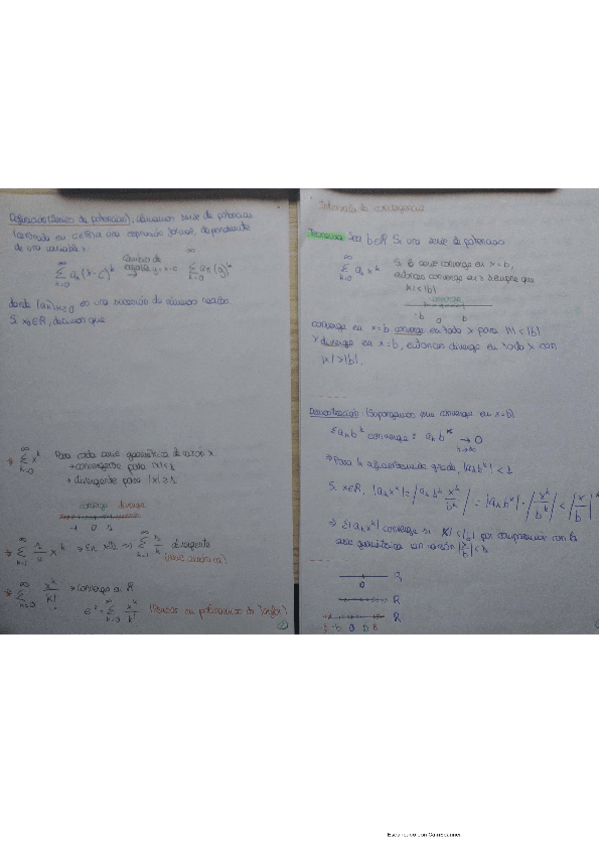 Definición (Series de potencias): llamamos serie de potencias
centrada en c∈R a una expresión formal, dependiente
de una variable x:
∞ Σ k=0 a_k (x-c)^k cambio de variable y=x-c ∞ Σ k=0 a_k (y)^k
donde (a_n)n≥0 es una sucesión de números reales
Si x₀∈R, decimos que
* ∞ Σ k=0 x^k Para cada serie geométrica de razón x
→ convergente para |x|<1
→ divergente para |x|≥1
converge diverge
-1 0 1
* ∞ Σ k=1 1/k x^k → En x=1 → ∞ Σ k=1 1/k divergente
(serie armónica)
* ∞ Σ k=0 x^k/k! → converge en R
e^x = ∞ Σ k=0 x^k/k! (polinomios de Taylor)
Intervalo de convergencia
Teorema: Sea b∈R Si una serie de potencias
∞ Σ k=0 a_k x^k
Si la serie converge en x=b,
entonces converge en x siempre que
|x|<|b|
converge
-b 0 b
converge en x=b converge en todo x para |x|<|b|
y diverge en x=b, entonces diverge en todo x con
|x|>|b|.
Demostración: (Supongamos que converge en x=b)
Σ a_k b^k converge: a_k b^k → 0
→ Para k suficientemente grande, |a_k b^k| < 1
Si x∈R, |a_k x^k| = |a_k b^k x^k/b^k| = |a_k b^k| · |x^k/b^k| < |x/b|^k
⇒ Σ|a_k x^k| converge si por comparación con la
serie geométrica con razón |x/b|<1
0
R
R
0
Escaneado con CamScanner